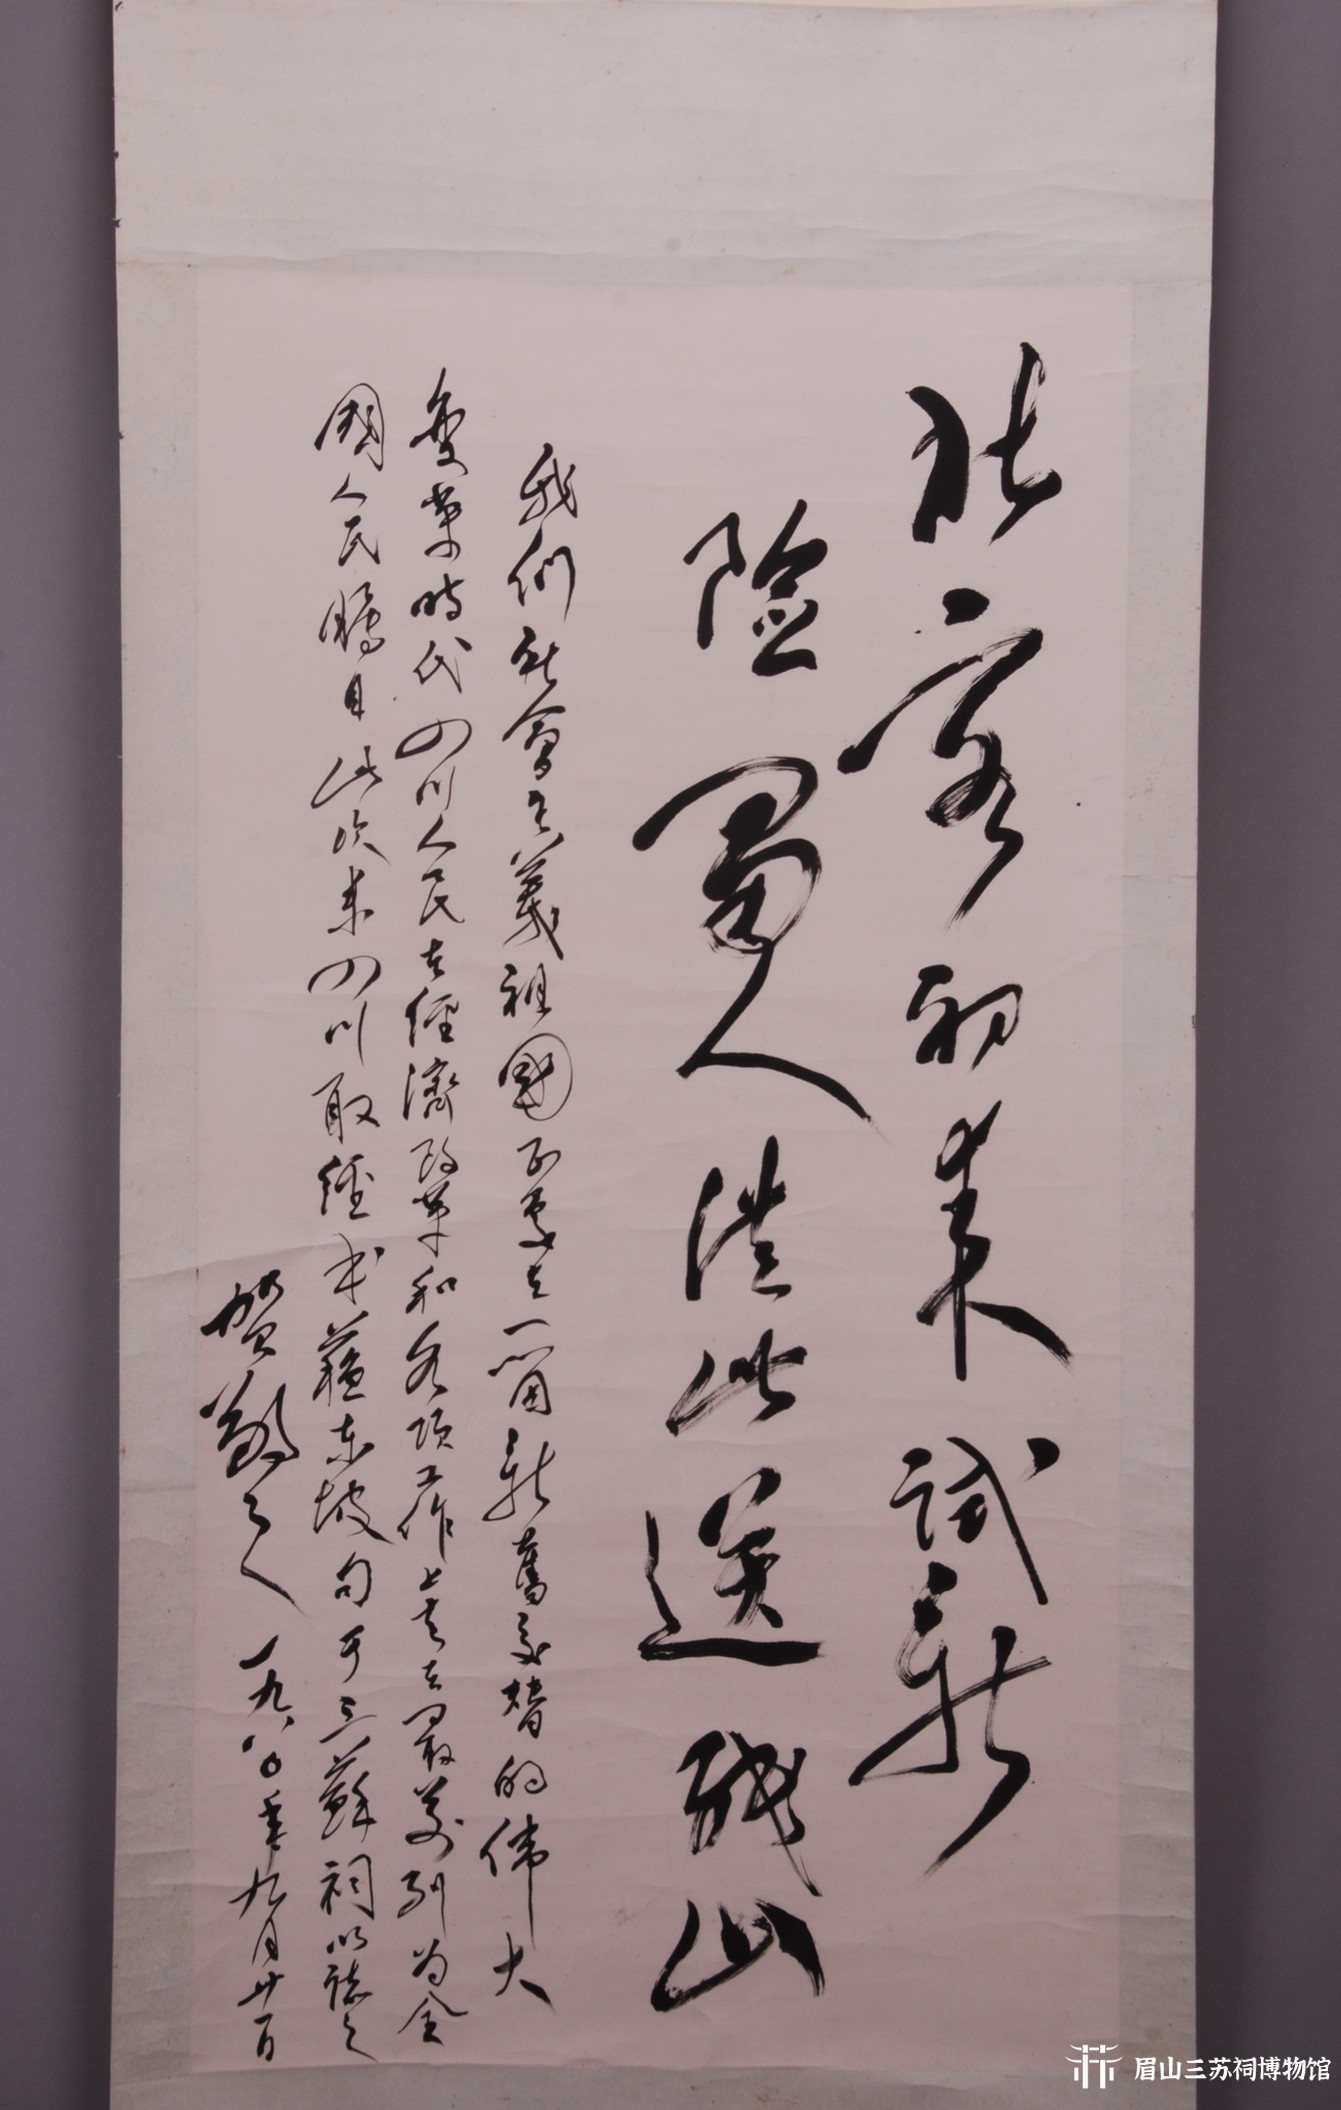 北客初来试新
险蜀人从此送残山
我们社会主义祖國正处在一個新舊交替的伟大
变革时代四川人民在经濟改革和各项工作上走在最前列为全
國人民瞩目此次来四川取经书蘇东坡句于三蘇祠以誌之
贺敬之 一九八〇年九月廿一日
眉山三苏祠博物馆